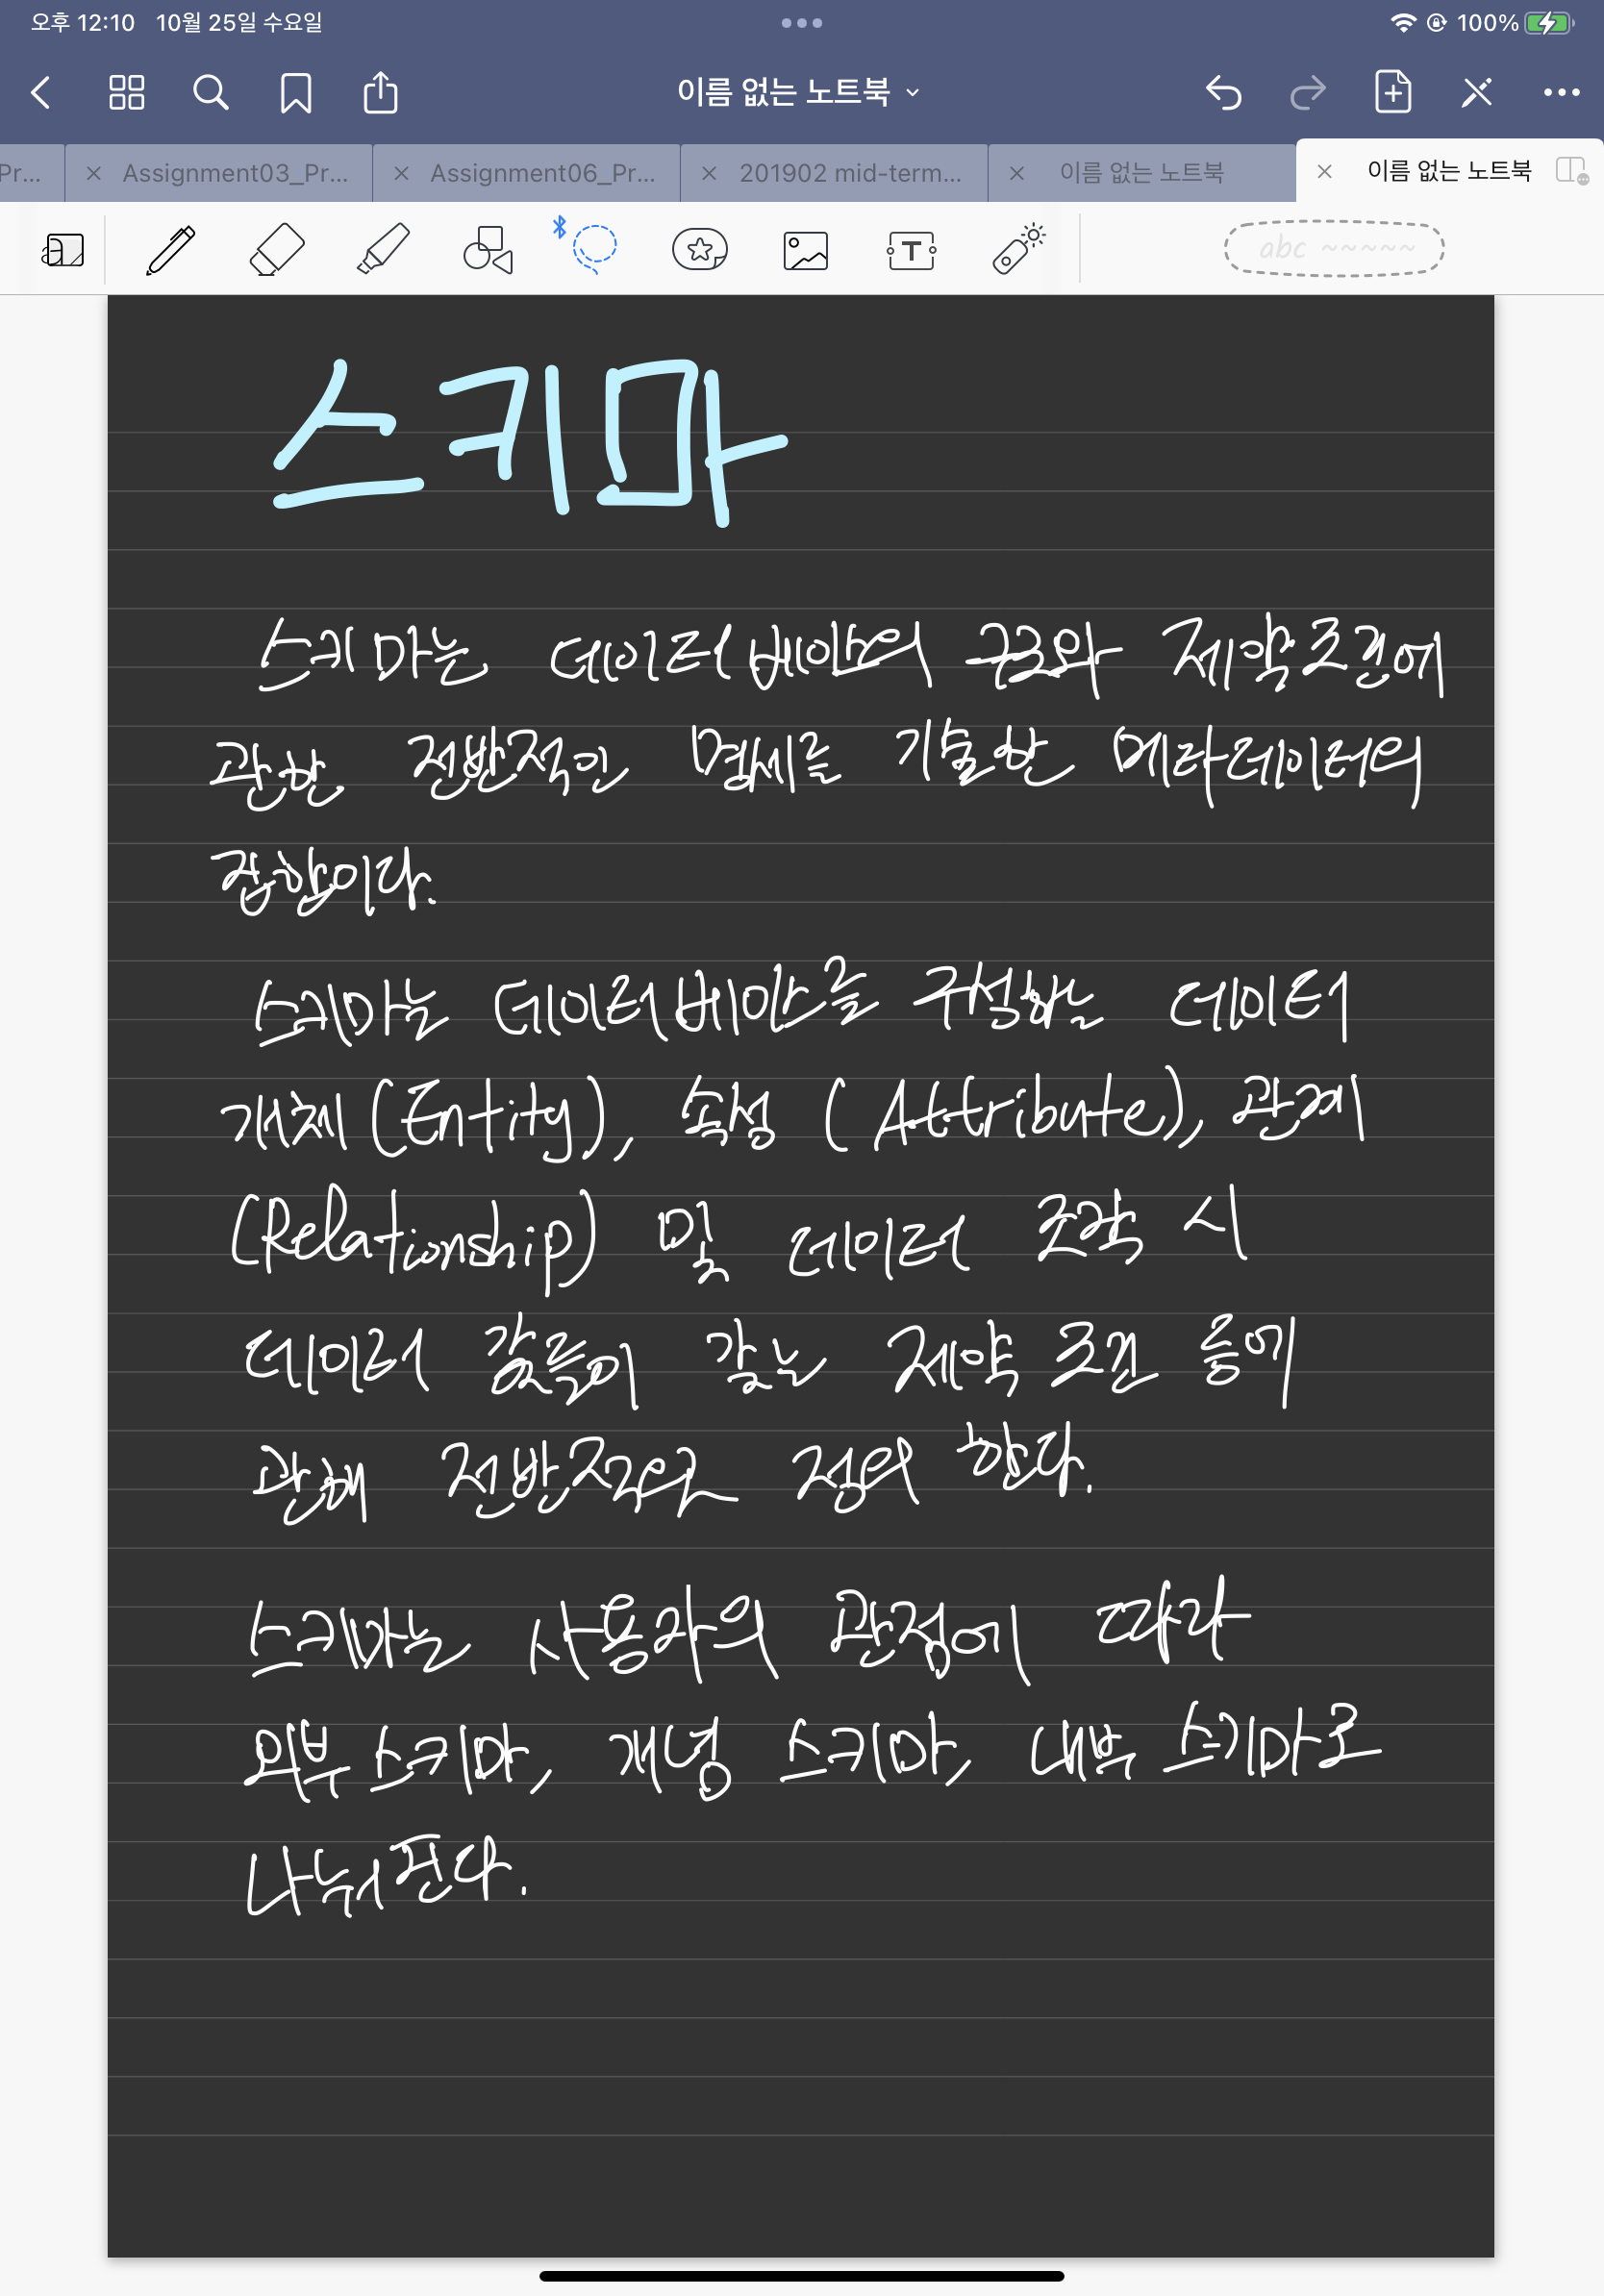 오후 12:10 10월 25일 수요일 100%
이름 없는 노트북
Pr... Assignment03_Pr... Assignment06_Pr... 201902 mid-term... 이름 없는 노트북 이름 없는 노트북
abc ~~~~~
스키마
스키마는 데이터베이스의 구조와 제약조건에
관한 전반적인 명세를 기술한 메타데이터의
집합이다.
스키마는 데이터베이스를 구성하는 데이터
개체(Entity), 속성 (Attribute), 관계
(Relationship) 및 데이터 조작 시
데이터 값들이 갖는 제약 조건 등에
관해 전반적으로 정의 한다.
스키마는 사용자의 관점에 따라
외부 스키마, 개념 스키마, 내부 스키마로
나눠진다.